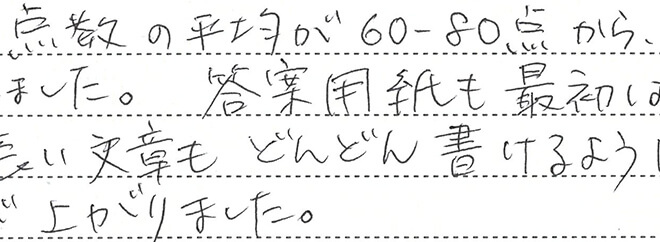 点数の平均が60-80点から、
ました。 答案用紙も最初は
長い文章もどんどん書けるように
上がりました。